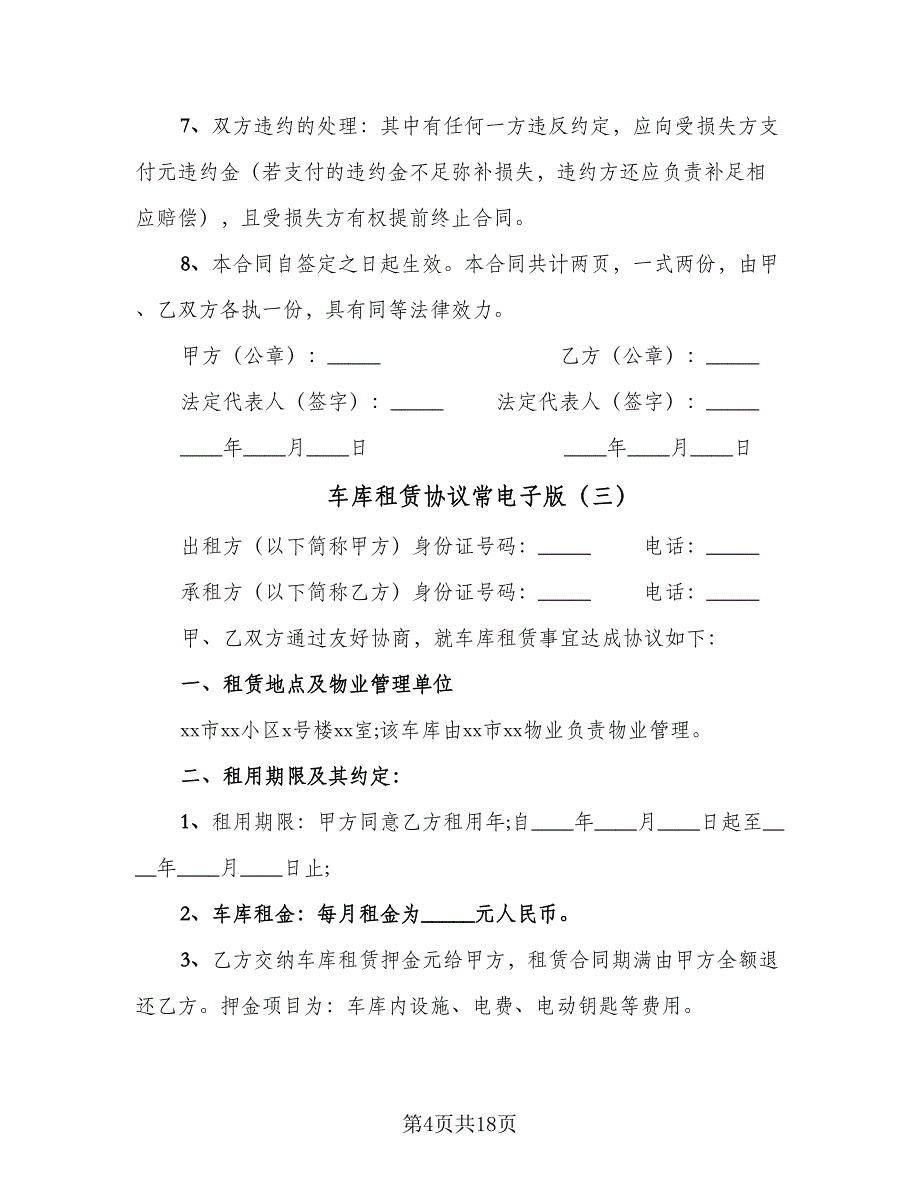 7、双方违约的处理：其中有任何一方违反约定，应向受损失方支
付元违约金（若支付的违约金不足弥补损失，违约方还应负责补足相
应赔偿），且受损失方有权提前终止合同。
8、本合同自签定之日起生效。本合同共计两页，一式两份，由甲
、乙双方各执一份，具有同等法律效力。
甲方（公章）：_____ 乙方（公章）：_____
法定代表人（签字）：_____ 法定代表人（签字）：_____
____年____月____日 ____年____月____日
车库租赁协议常电子版（三）
出租方（以下简称甲方）身份证号码：_____ 电话：_____
承租方（以下简称乙方）身份证号码：_____ 电话：_____
甲、乙双方通过友好协商，就车库租赁事宜达成协议如下：
一、租赁地点及物业管理单位
xx市xx小区x号楼xx室;该车库由xx市xx物业负责物业管理。
二、租用期限及其约定：
1、租用期限：甲方同意乙方租用年;自____年____月____日起至__
__年____月____日止;
2、车库租金：每月租金为_____元人民币。
3、乙方交纳车库租赁押金元给甲方，租赁合同期满由甲方全额退
还乙方。押金项目为：车库内设施、电费、电动钥匙等费用。
第4页共18页